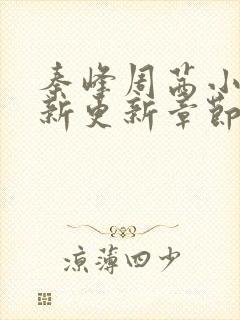 秦峰周茜小
新更新章节
凉薄四少